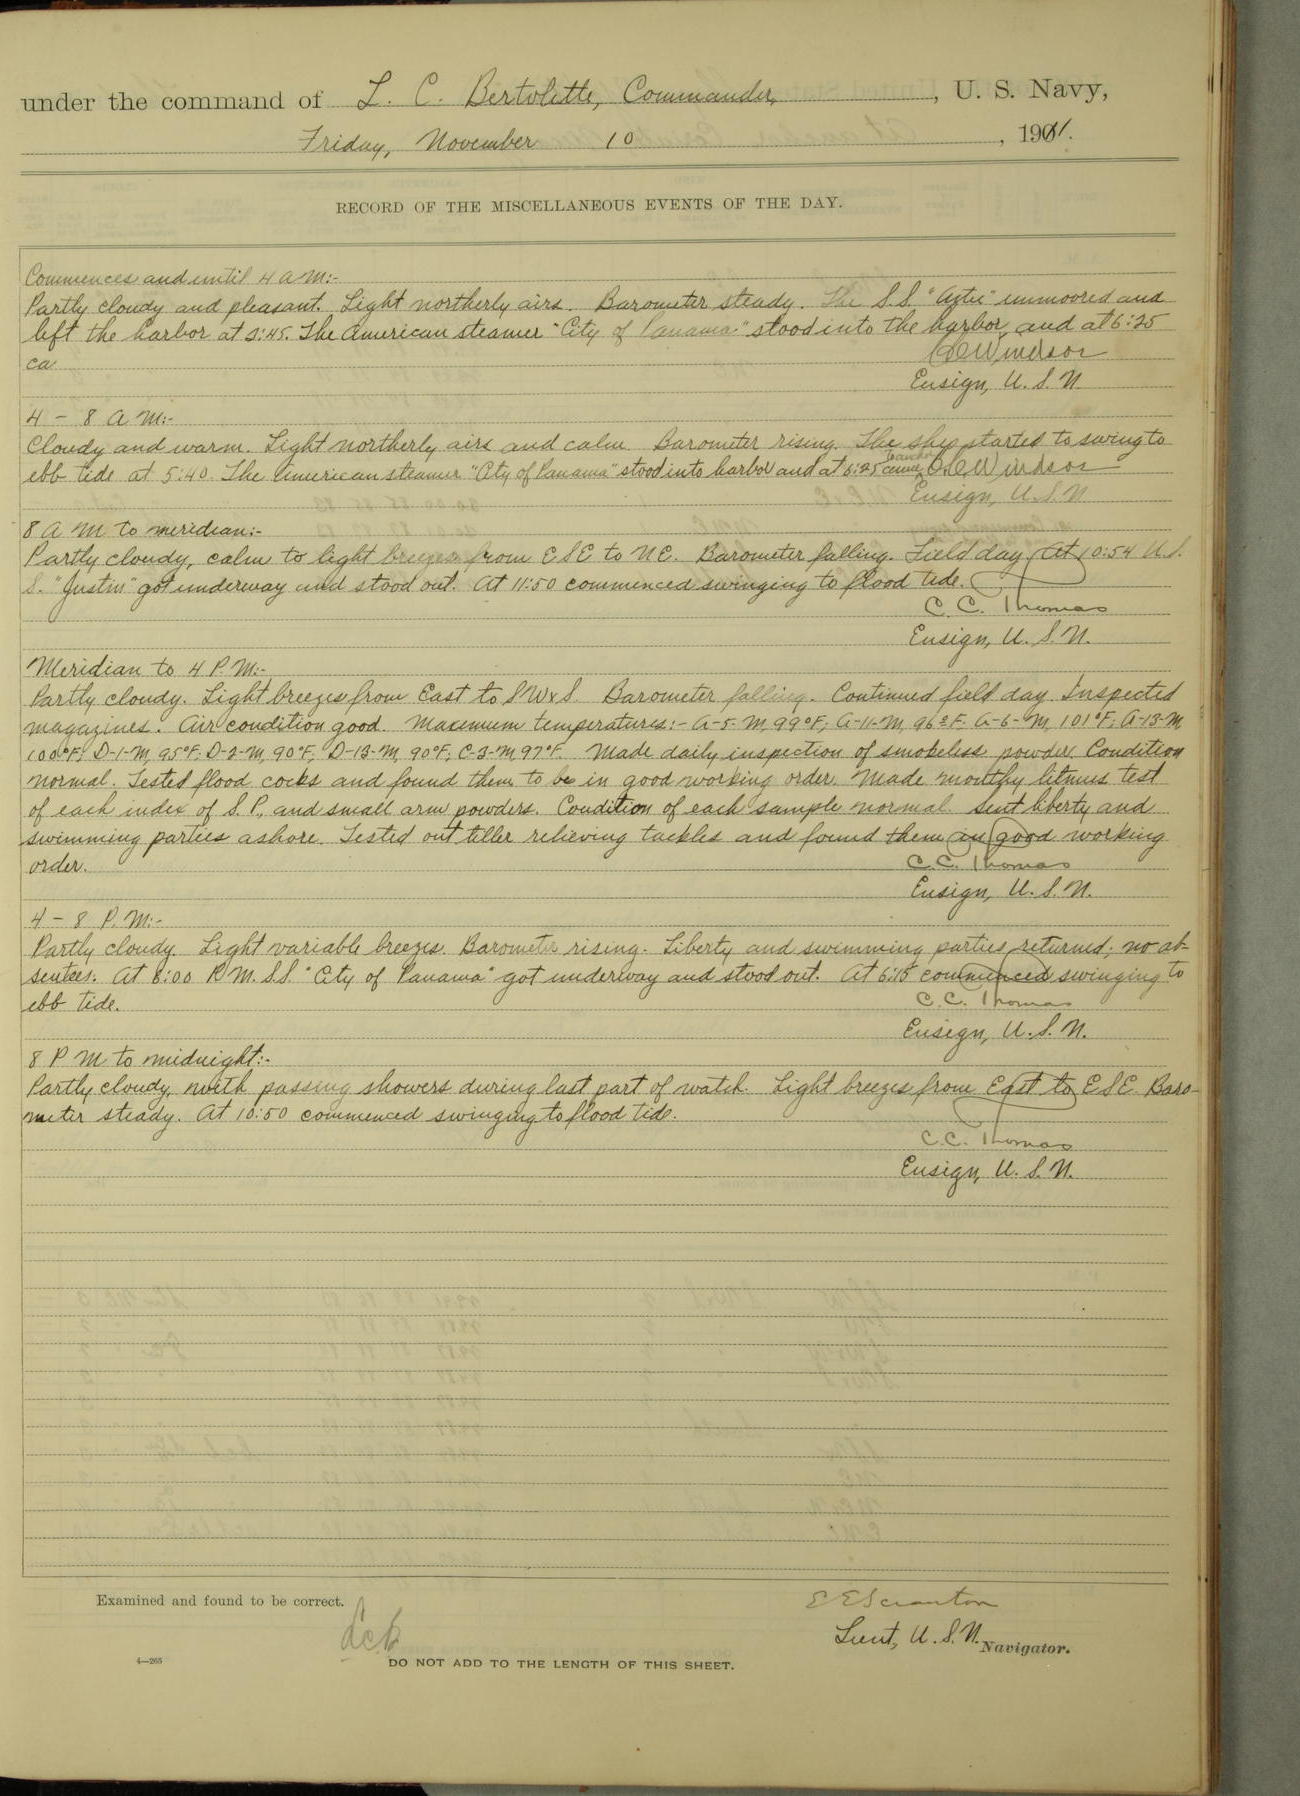 under the command of L. C. Bertolette, Commander, U. S. Navy,
Friday, November 10, 1911.
RECORD OF THE MISCELLANEOUS EVENTS OF THE DAY.
Commences and until 4 A M:-
Partly cloudy and pleasant. Light northerly airs. Barometer steady. The S.S. "Aztec" unmoored and
left the harbor at 2:45. The American steamer "City of Panama" stood into the harbor and at 6:25
ca
Windsor
Ensign, U. S. N.
4 - 8 A M:-
Cloudy and warm. Light northerly airs and calm. Barometer rising. The ship started to swing to
ebb tide at 5:40. The American steamer "City of Panama" stood into harbor and at 6:25 came to anchor. Windsor
Ensign, U. S. N
8 A M to meridian:-
Partly cloudy, calm to light breezes from ESE to NE. Barometer falling. Field day. At 10:54 U.S.
S. "Justin" got underway and stood out. At 11:50 commenced swinging to flood tide.
C. C. Thomas
Ensign, U. S. N.
Meridian to 4 P. M:-
Partly cloudy. Light breezes from East to SWxS. Barometer falling. Continued field day. Inspected
magazines. Air condition good. Maximum temperatures:- A-5-M, 99°F; A-11-M, 96°F, A-6-M, 101°F; A-13-M,
100°F; D-1-M, 95°F; D-2-M, 90°F; D-13-M, 90°F; C-3-M, 97°F. Made daily inspection of smokeless powder. Condition
normal. Tested flood cocks and found them to be in good working order. Made monthly litmus test
of each index of S.P., and small arm powders. Condition of each sample normal. Sent liberty and
swimming parties ashore. Tested out tiller relieving tackles and found them in good working
order.
C. C. Thomas
Ensign, U. S. N.
4 - 8 P. M:-
Partly cloudy. Light variable breezes. Barometer rising. Liberty and swimming parties returned; no ab-
sentees. At 6:00 P.M. S.S. "City of Panama" got underway and stood out. At 6:15 commenced swinging to
ebb tide.
C. C. Thomas
Ensign, U. S. N.
8 P M to midnight:-
Partly cloudy, with passing showers during last part of watch. Light breezes from East to ESE. Baro-
meter steady. At 10:50 commenced swinging to flood tide.
C. C. Thomas
Ensign, U. S. N.
Examined and found to be correct.
LCB
E E Scranton
Lieut, U. S. N. Navigator.
4—265
DO NOT ADD TO THE LENGTH OF THIS SHEET.